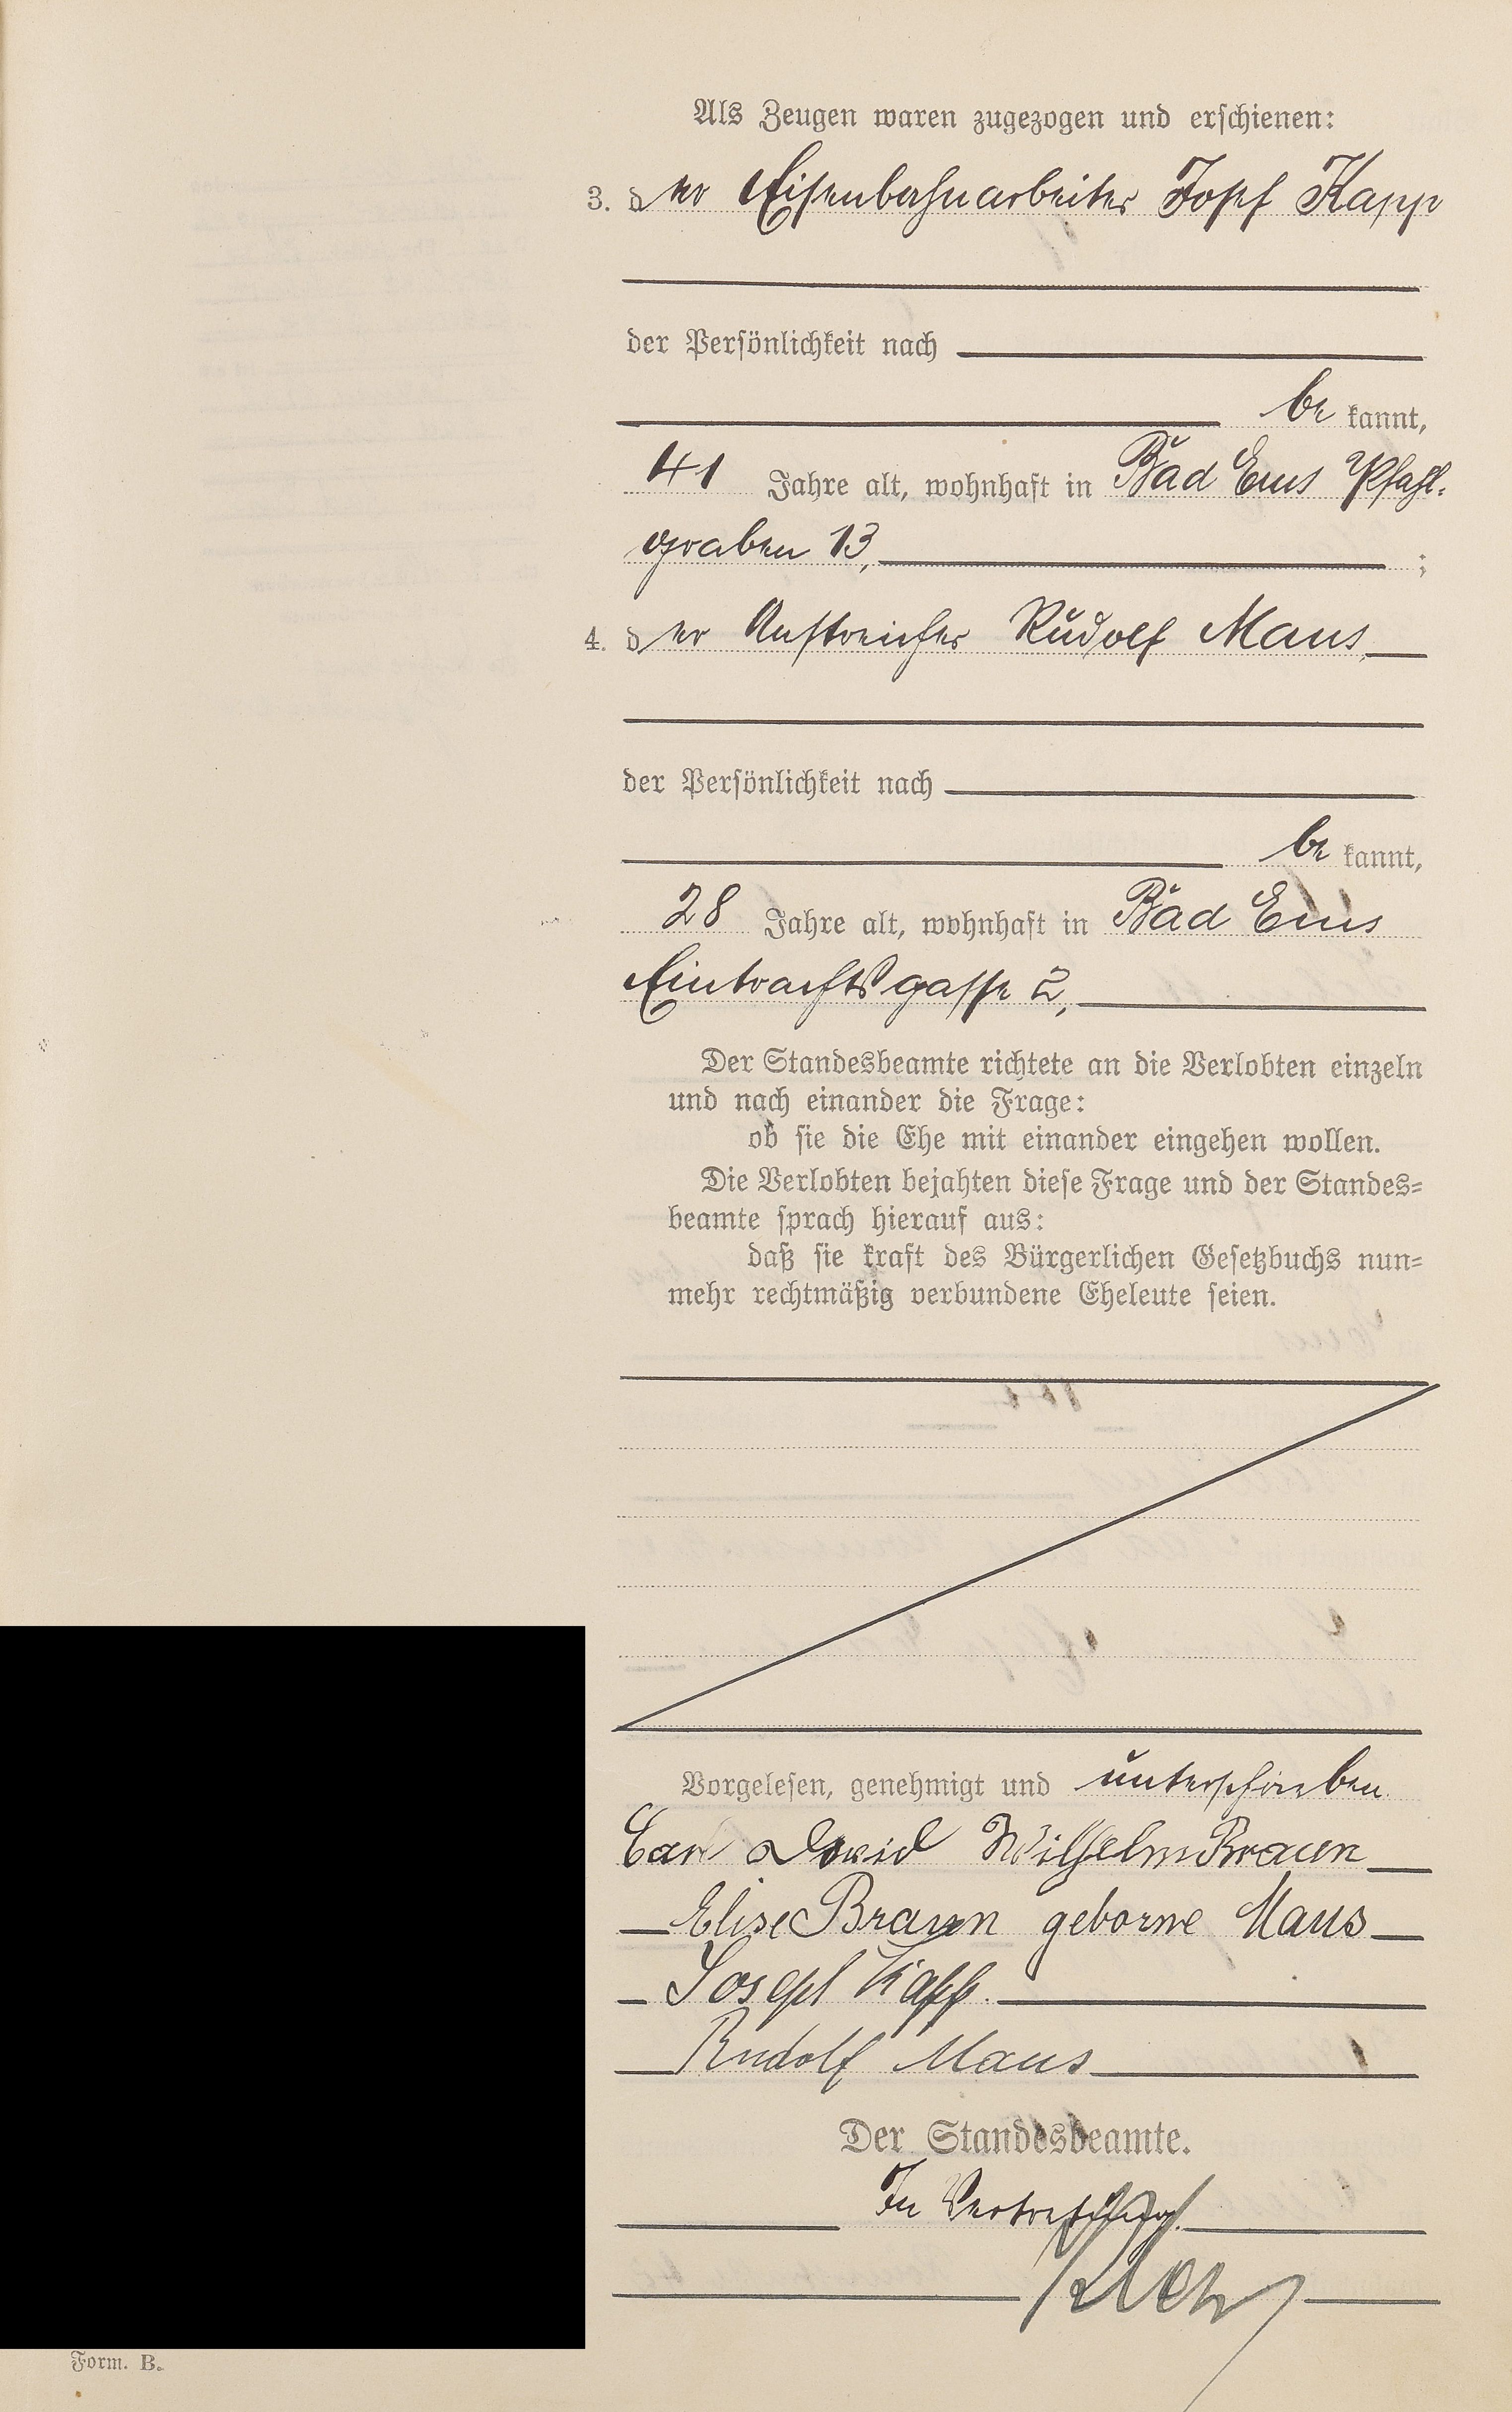 Als Zeugen waren zugezogen und erschienen:
3. der Eisenbahnarbeiter Josef Kapp
der Persönlichkeit nach
be kannt,
41 Jahre alt, wohnhaft in Bad Ems Pfahl-
graben 13, ;
4. der Anstreicher Rudolf Maus,
der Persönlichkeit nach
be kannt,
28 Jahre alt, wohnhaft in Bad Ems
Eintrachtsgasse 2,
Der Standesbeamte richtete an die Verlobten einzeln
und nach einander die Frage:
ob sie die Ehe mit einander eingehen wollen.
Die Verlobten bejahten diese Frage und der Standes=
beamte sprach hierauf aus:
daß sie kraft des Bürgerlichen Gesetzbuchs nun=
mehr rechtmäßig verbundene Eheleute seien.
Vorgelesen, genehmigt und unterschrieben.
Carl David Wilhelm Braun
Elise Braun geborne Maus
Joseph Kapp.
Rudolf Maus
Der Standesbeamte.
In Vertretung.
Form. B.